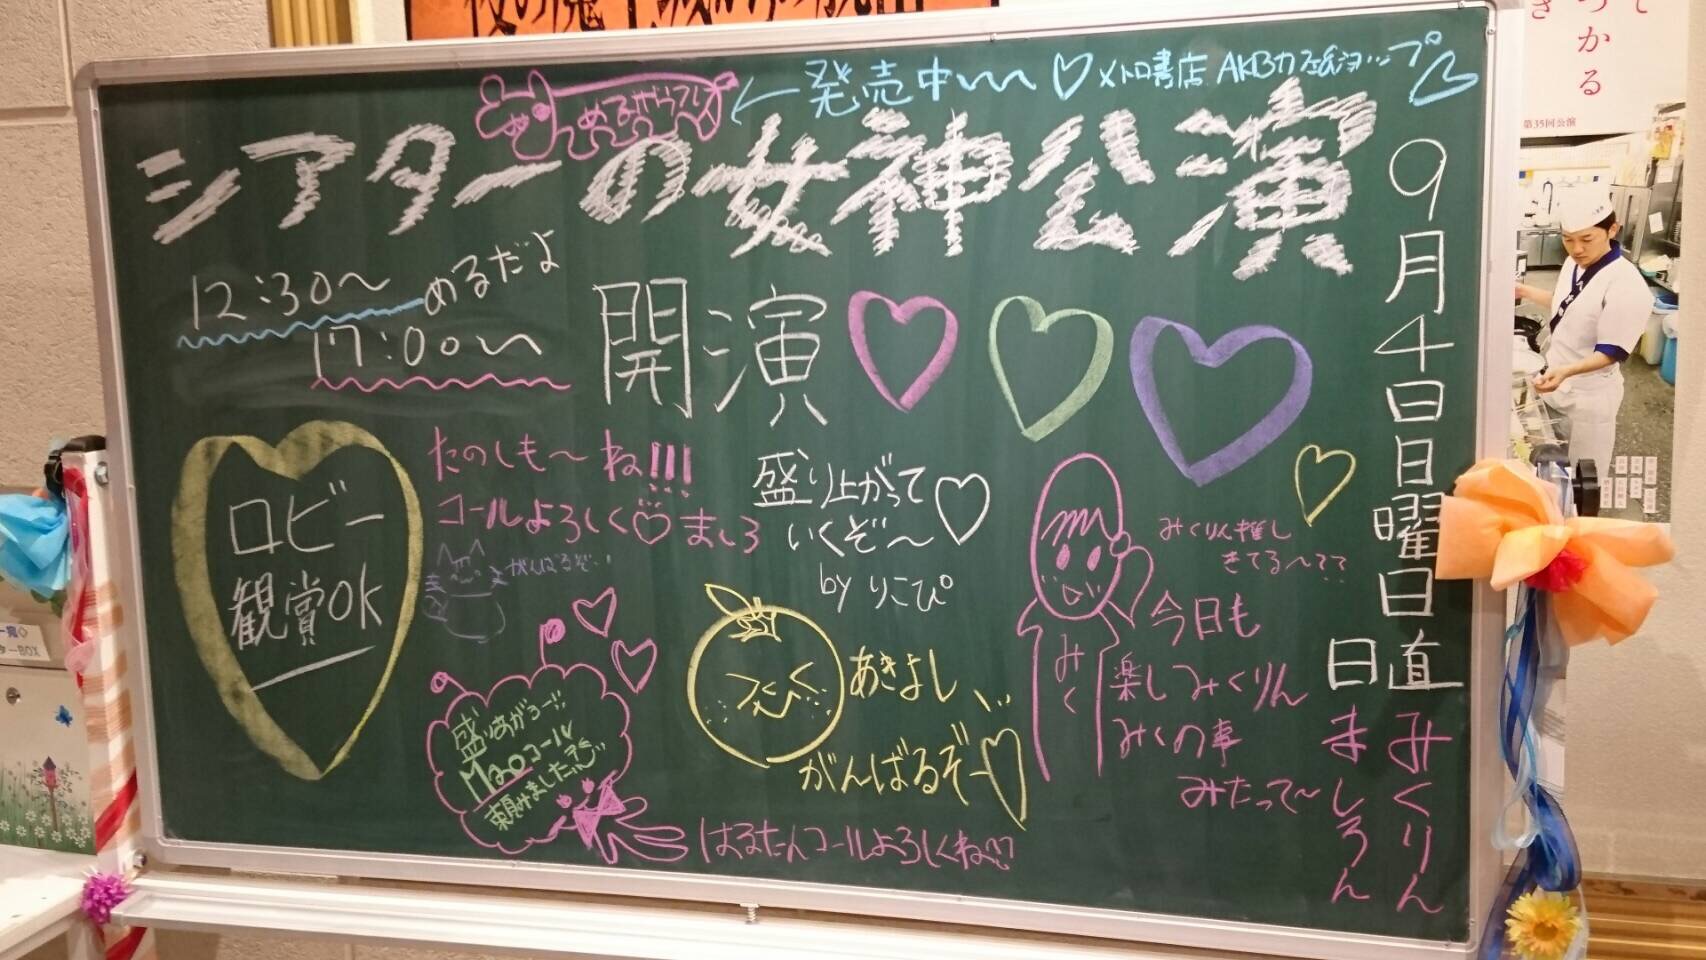 ←発売中〜〜♡メトロ書店 AKBカフェ&ショップ♡
シアターの女神公演
9月4日日曜日
日直
みくりん
ましろん
12:30〜めるだよ
17:00〜
開演
ロビー
観賞OK
たのしも〜ね!!!
コールよろしく♡ましろ
がんばるぞ
盛り上がって
いくぞ〜♡
by りこぴ
みくりん推し
きてる〜??
みく
今日も
楽しみくりん
みくの事
みたって〜
あきよし
がんばるぞー♡
盛りあがろー!!
Maoコール
はるたんコールよろしくね
つかる
第35回公演